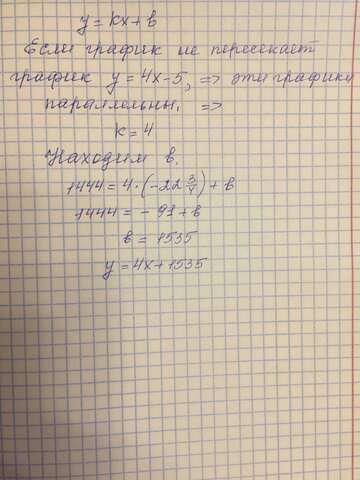 y = kx + b
Если график не пересекает
график y = 4x - 5, => эти графики
параллельны, =>
k = 4
Находим b.
1444 = 4 · (-22 3/4) + b
1444 = - 91 + b
b = 1535
y = 4x + 1535